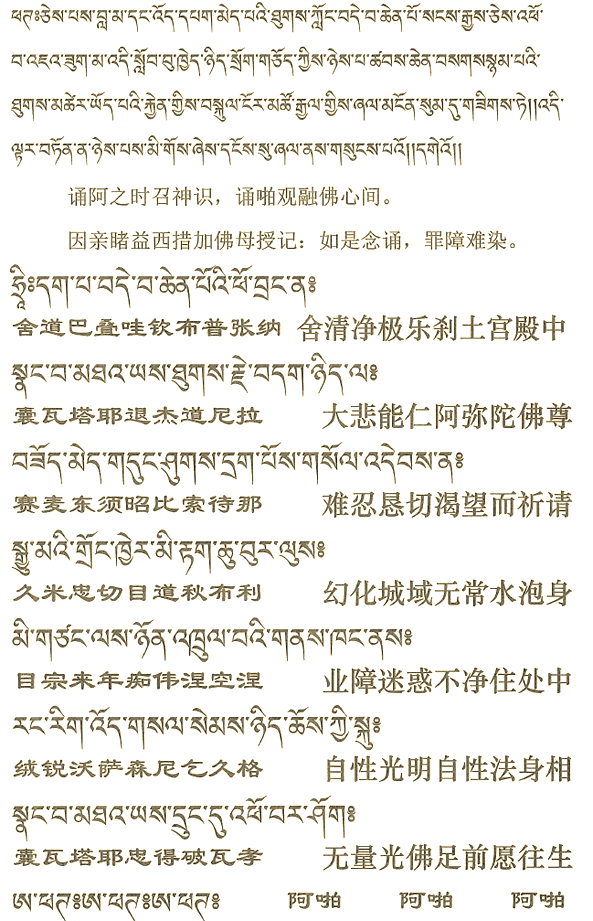 ཕཊ༔ཅེས་པས་བླ་མ་དང་འོད་དཔག་མེད་པའི་ཐུགས་ཀློང་བདེ་བ་ཆེན་པོ་སངས་རྒྱས་ཅེས་འཕོ་
བ་འཇའ་ཟུག་མ་འདི་སློབ་བུ་ཁྱེད་ཉིད་སྲོག་གཅོད་ཀྱིས་ཉེས་པ་ཚབས་ཆེན་བསགས་སྙམ་པའི་
ཐུགས་མཚེར་ཡོད་པའི་རྐྱེན་གྱིས་བསྐུལ་ངོར་མཚོ་རྒྱལ་གྱིས་ཞལ་མངོན་སུམ་དུ་གཟིགས་ཏེ།།འདི་
ལྟར་བཏོན་ན་ཉེས་པས་མི་གོས་ཞེས་དངོས་སུ་ཞལ་ནས་གསུངས་པའོ།།དགེའོ།།
诵阿之时召神识，诵啪观融佛心间。
因亲睹益西措加佛母授记：如是念诵，罪障难染。
ཧྲཱིཿ༔དག་པ་བདེ་བ་ཆེན་པོའི་ཕོ་བྲང་ན༔
舍道巴叠哇钦布普张纳 舍清净极乐刹土宫殿中
སྣང་བ་མཐའ་ཡས་ཐུགས་རྗེ་བདག་ཉིད་ལ༔
囊瓦塔耶退杰道尼拉 大悲能仁阿弥陀佛尊
བཟོད་མེད་གདུང་ཤུགས་དྲག་པོས་གསོལ་འདེབས་ན༔
赛麦东须昭比索待那 难忍恳切渴望而祈请
སྒྱུ་མའི་གྲོང་ཁྱེར་མི་རྟག་ཆུ་བུར་ལུས༔
久米忠切目道秋布利 幻化城域无常水泡身
མི་གཙང་ལས་ཉོན་འཁྲུལ་བའི་གནས་ཁང་ནས༔
目宗来年痴伟涅空涅 业障迷惑不净住处中
རང་རིག་འོད་གསལ་སེམས་ཉིད་ཆོས་ཀྱི་སྐུ༔
绒锐沃萨森尼乞久格 自性光明自性法身相
སྣང་བ་མཐའ་ཡས་དྲུང་དུ་འཕོ་བར་ཤོག༔
囊瓦塔耶忠得破瓦孝 无量光佛足前愿往生
ཨ་ཕཊ༔ཨ་ཕཊ༔ཨ་ཕཊ༔ 阿啪 阿啪 阿啪